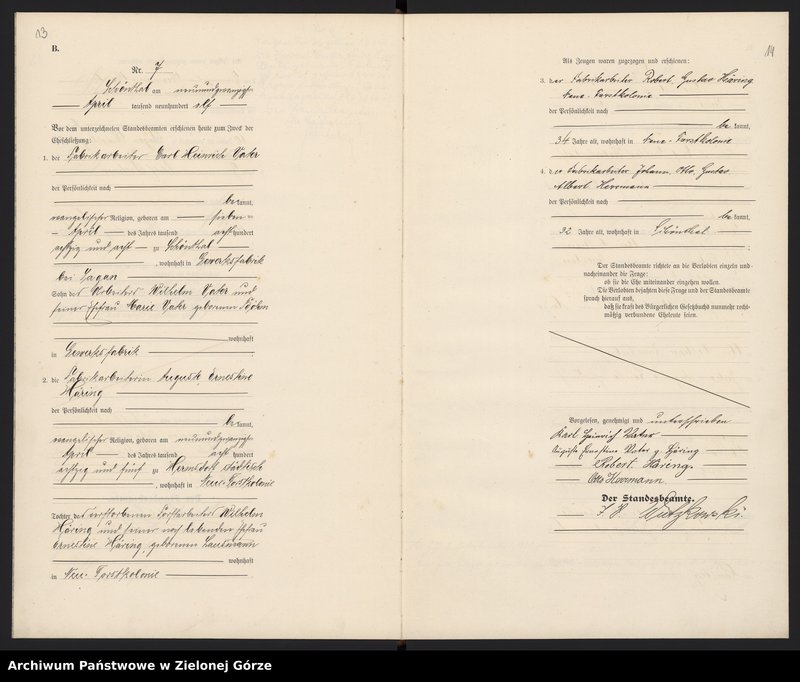 13
B.
Nr. 7
Schönthal am neunundzwanzigsten
April tausend neunhundert elf
Vor dem unterzeichneten Standesbeamten erschienen heute zum Zweck der
Eheschließung:
1. der Fabrikarbeiter Carl Heinrich Vater
der Persönlichkeit nach
be kannt,
evangelischer Religion, geboren am sieben-
April des Jahres tausend acht hundert
achtzig und acht zu Schönthal
, wohnhaft in Gewerksfabrik
bei Sagan
Sohn des Arbeiters Wilhelm Vater und
seiner Ehefrau Marie Vater geborenen
wohnhaft
in Gewerksfabrik
2. die Fabrikarbeiterin Auguste Ernestine
Häring
der Persönlichkeit nach
be kannt,
evangelischer Religion, geboren am neunundzwanzigsten
April des Jahres tausend acht hundert
achtzig und fünf zu Hermsdorf städtisch
, wohnhaft in Neu-Forstkolonie
Tochter des verstorbenen Forstarbeiters Wilhelm
Häring und seiner noch lebenden Frau
Ernestine Häring, geborenen
wohnhaft
in Neu-Forstkolonie
14
Als Zeugen waren zugezogen und erschienen:
3. der Fabrikarbeiter Robert Gustav Häring
Neue-Forstkolonie
der Persönlichkeit nach
be kannt,
34 Jahre alt, wohnhaft in Neue-Forstkolonie
4. der Fabrikarbeiter Johann Otto Gustav
Albert Herrmann
der Persönlichkeit nach
be kannt,
32 Jahre alt, wohnhaft in Schönthal
Der Standesbeamte richtete an die Verlobten einzeln und
nacheinander die Frage:
ob sie die Ehe miteinander eingehen wollen.
Die Verlobten bejahten diese Frage und der Standesbeamte
sprach hierauf aus,
daß sie kraft des Bürgerlichen Gesetzbuchs nunmehr recht-
mäßig verbundene Eheleute seien.
Vorgelesen, genehmigt und unterschrieben
Karl Heinrich Vater
Auguste Ernestine Vater g. Häring
Robert Häring.
Otto Herrmann
Der Standesbeamte.
I. V.
Archiwum Państwowe w Zielonej Górze